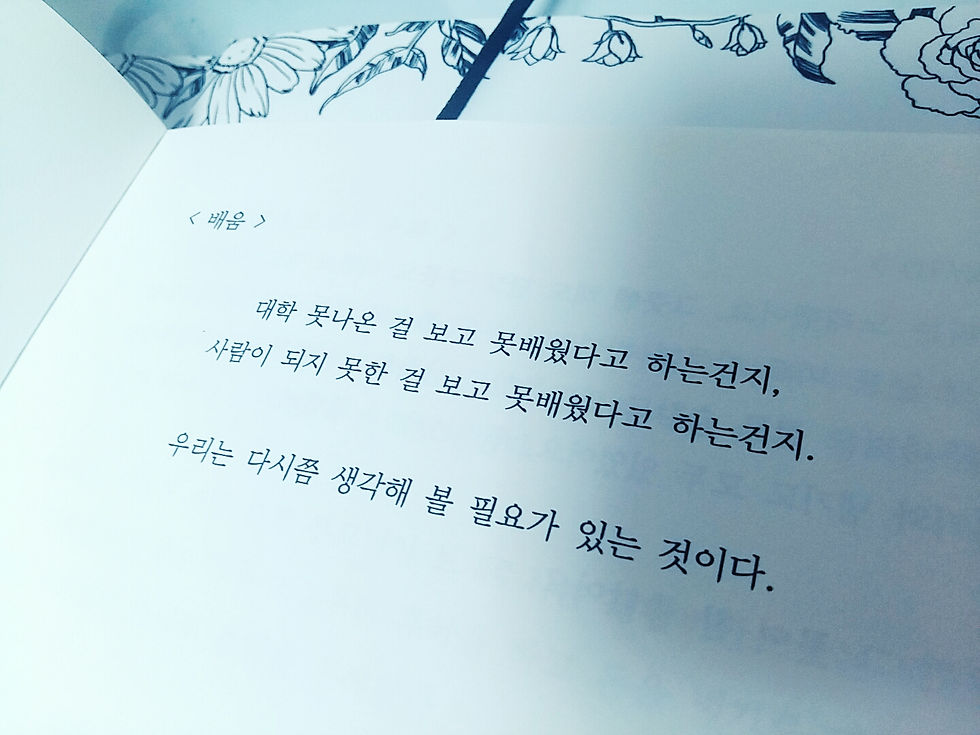 < 배움 >
대학 못나온 걸 보고 못배웠다고 하는건지,
사람이 되지 못한 걸 보고 못배웠다고 하는건지.
우리는 다시쯤 생각해 볼 필요가 있는 것이다.